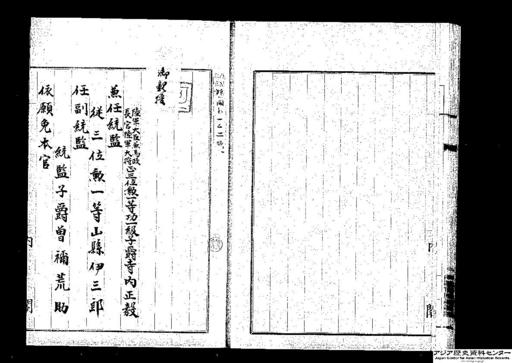 御親後
陸軍大臣兼馬政
長官陸軍大将正三位勲一等功一級子爵寺内正毅
兼任統監
従三位勲一等山縣伊三郎
任副統監
統監子爵曾禰荒助
依願免本官
内閣
アジア歴史資料センター
Japan Center for Asian Historical Records